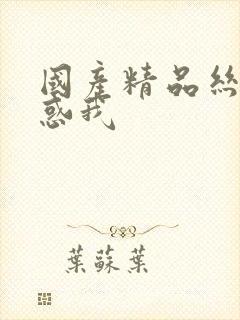 國產精品絲
惑我
葉蘇葉